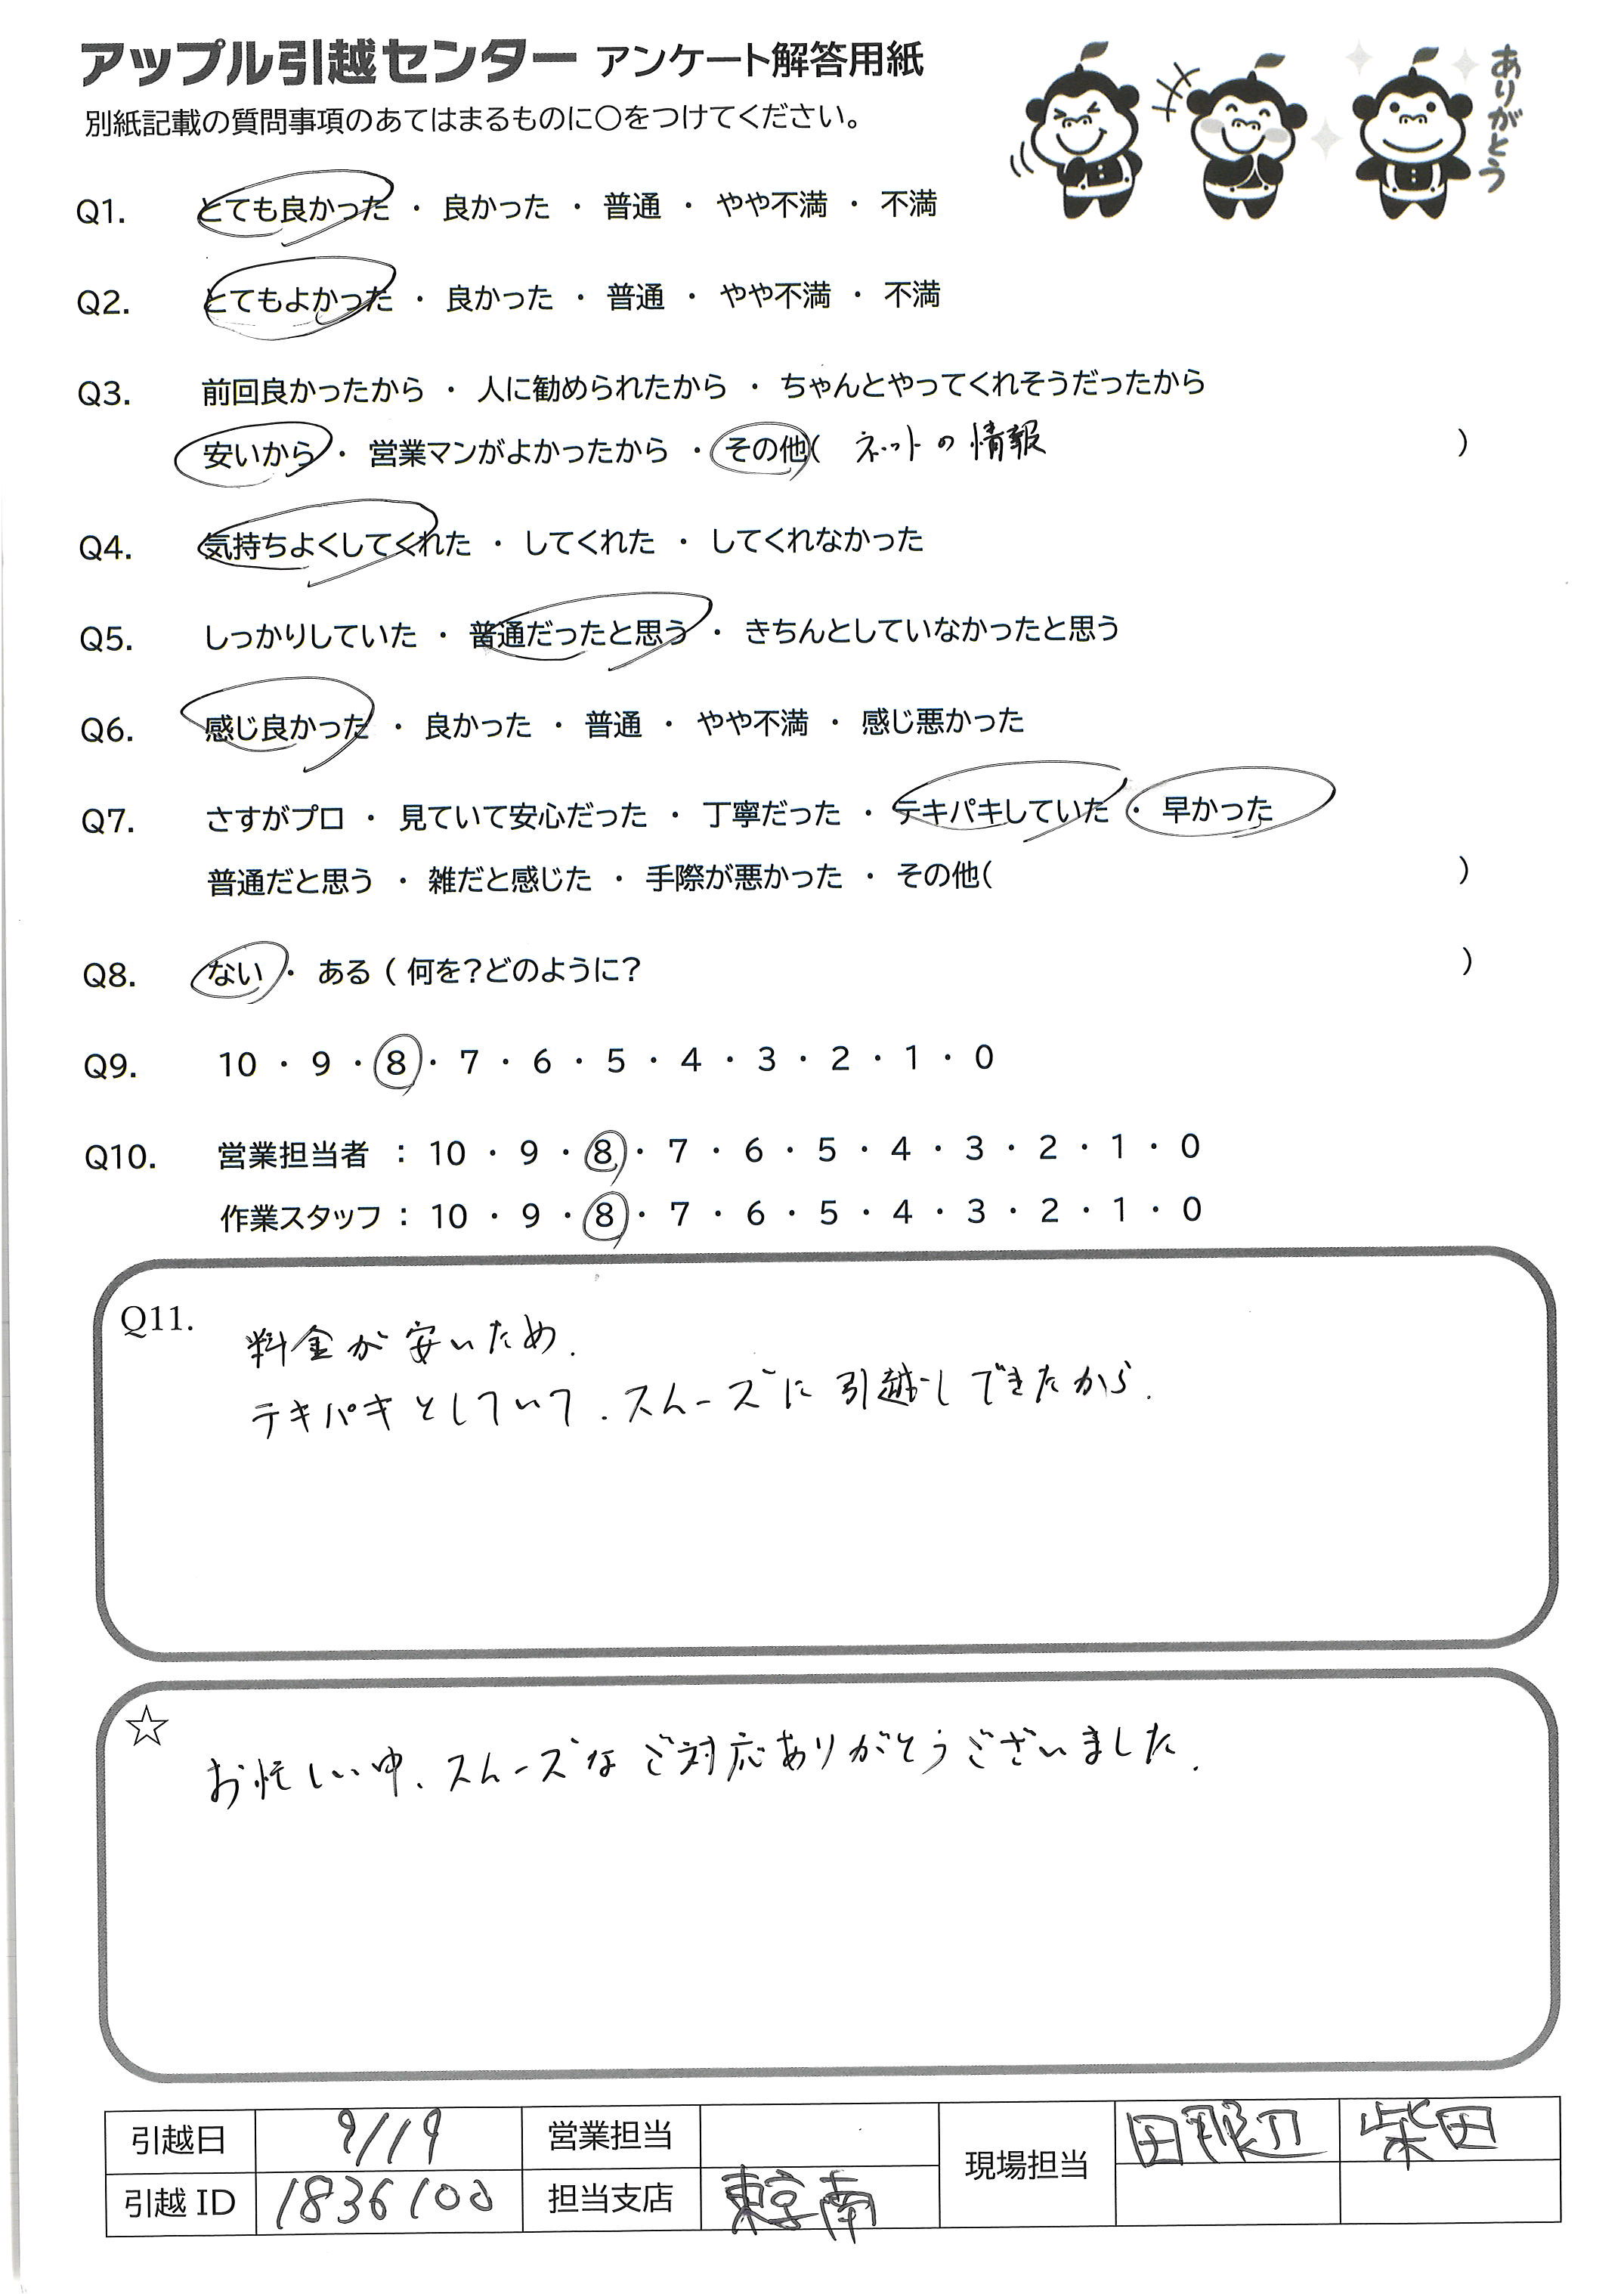 アップル引越センター アンケート解答用紙
別紙記載の質問事項のあてはまるものに〇をつけてください。
ありがとう
Q1. とても良かった ・ 良かった ・ 普通 ・ やや不満 ・ 不満
Q2. とてもよかった ・ 良かった ・ 普通 ・ やや不満 ・ 不満
Q3. 前回良かったから ・ 人に勧められたから ・ ちゃんとやってくれそうだったから
安いから ・ 営業マンがよかったから ・ その他( ネットの情報 )
Q4. 気持ちよくしてくれた ・ してくれた ・ してくれなかった
Q5. しっかりしていた ・ 普通だったと思う ・ きちんとしていなかったと思う
Q6. 感じ良かった ・ 良かった ・ 普通 ・ やや不満 ・ 感じ悪かった
Q7. さすがプロ ・ 見ていて安心だった ・ 丁寧だった ・ テキパキしていた ・ 早かった
普通だと思う ・ 雑だと感じた ・ 手際が悪かった ・ その他( )
Q8. ない ・ ある ( 何を?どのように? )
Q9. 10 ・ 9 ・ 8 ・ 7 ・ 6 ・ 5 ・ 4 ・ 3 ・ 2 ・ 1 ・ 0
Q10. 営業担当者 : 10 ・ 9 ・ 8 ・ 7 ・ 6 ・ 5 ・ 4 ・ 3 ・ 2 ・ 1 ・ 0
作業スタッフ : 10 ・ 9 ・ 8 ・ 7 ・ 6 ・ 5 ・ 4 ・ 3 ・ 2 ・ 1 ・ 0
Q11. 料金が安いため.
テキパキとしていて.スムーズに引越しできたから.
☆ お忙しい中、スムーズなご対応ありがとうございました.
引越日 9/19 営業担当 現場担当 柴田
引越 ID 1836100 担当支店 東京南